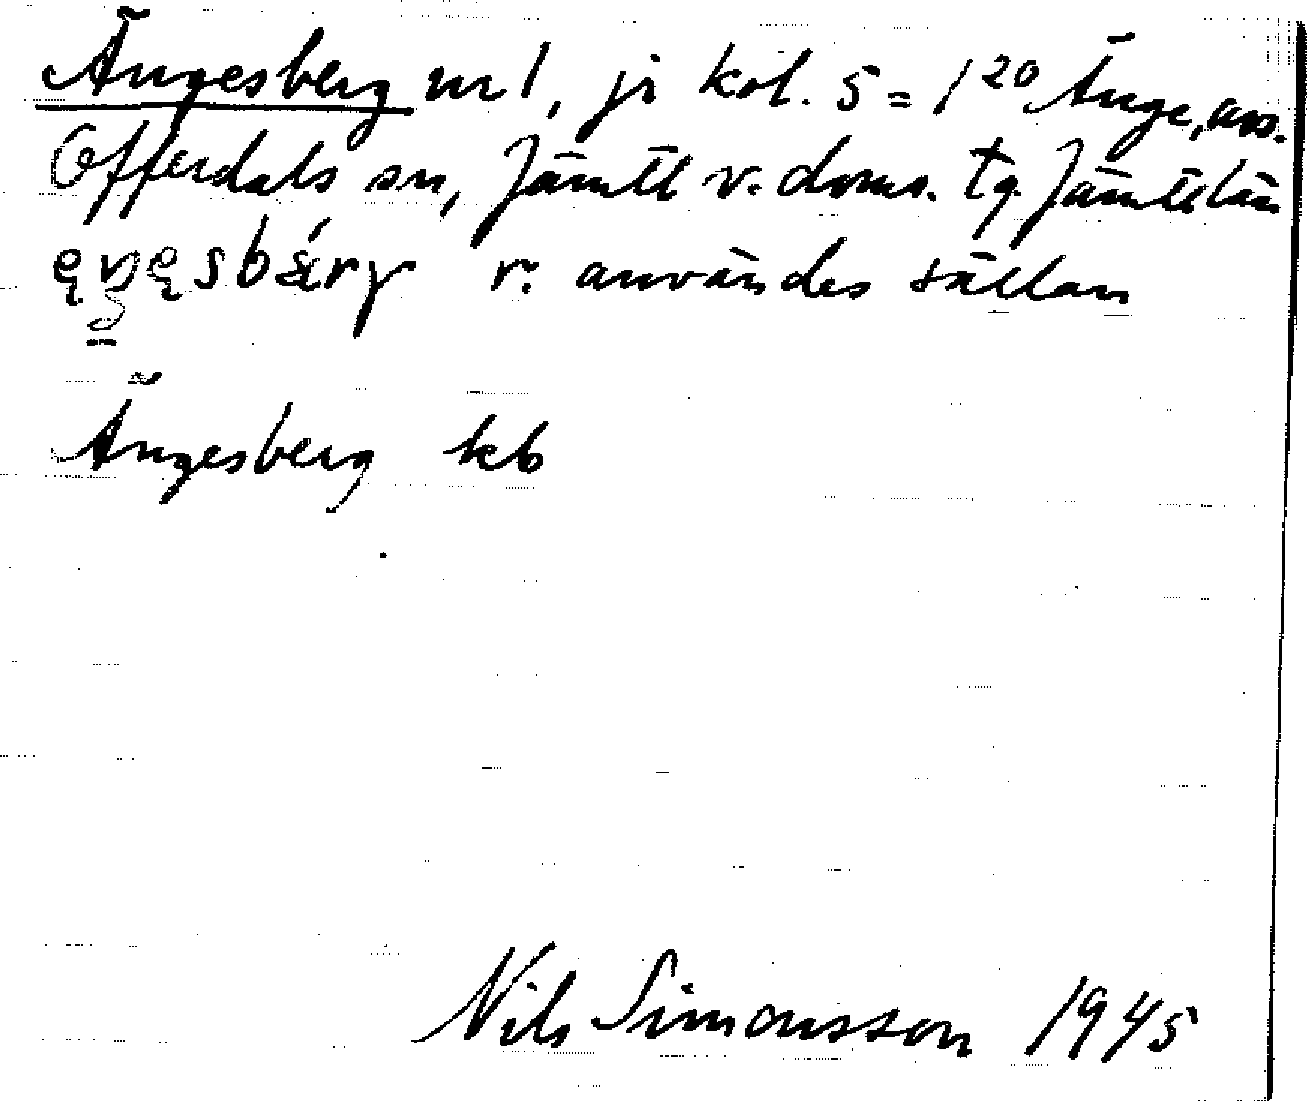 Ängesberg nr 1, jr kol. 5 = 1²⁰ Änge, avs.
Offerdals sn, Jämtl v. doms. tg. Jämtl län
r. användes sällan
Ängesberg kb
Nils Simonsson 1945